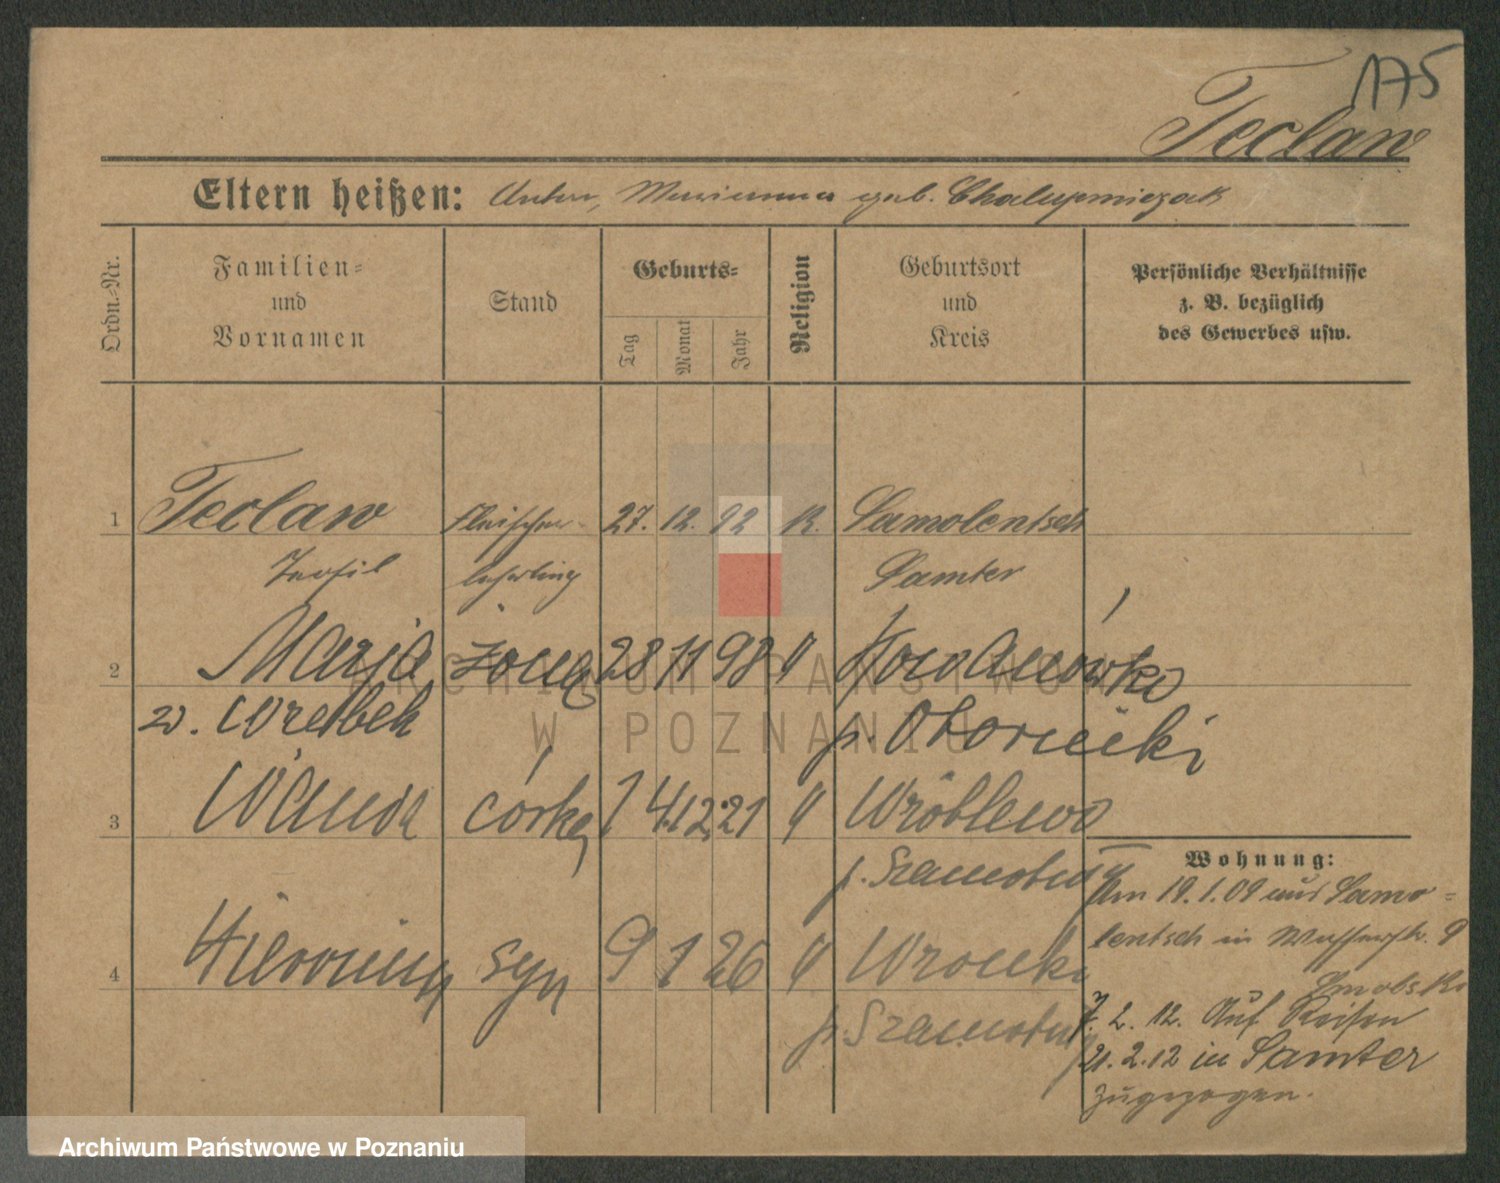 175
Teclaw
Eltern heißen: Anton, Marianna geb. Chalupniczak
Ordn.-Nr.
Familien-
und
Vornamen
Stand
Geburts-
Tag
Monat
Jahr
Religion
Geburtsort
und
Kreis
Persönliche Verhältnisse
z. B. bezüglich
des Gewerbes usw.
1 Teclaw Fleischer- 27. 12. 92 K. Samolentsch
Teofil lehrling Samter
2 Marja żona 28 11 98 Howanówko
Wrembek p. Obornicki
3 Wanda córka 12 21 Wróblewo
p. Szamotuły
4 Hieronim syn 9 1 26 Wronki
p. Szamotuły
Wohnung:
Am 19.1.09 aus Samo-
lentsch in Wasserstr. 9
7. 2. 12. Auf Reisen
21. 2. 12 in Samter
zugezogen.
ARCHIWUM PAŃSTWOWE
W POZNANIU
Archiwum Państwowe w Poznaniu